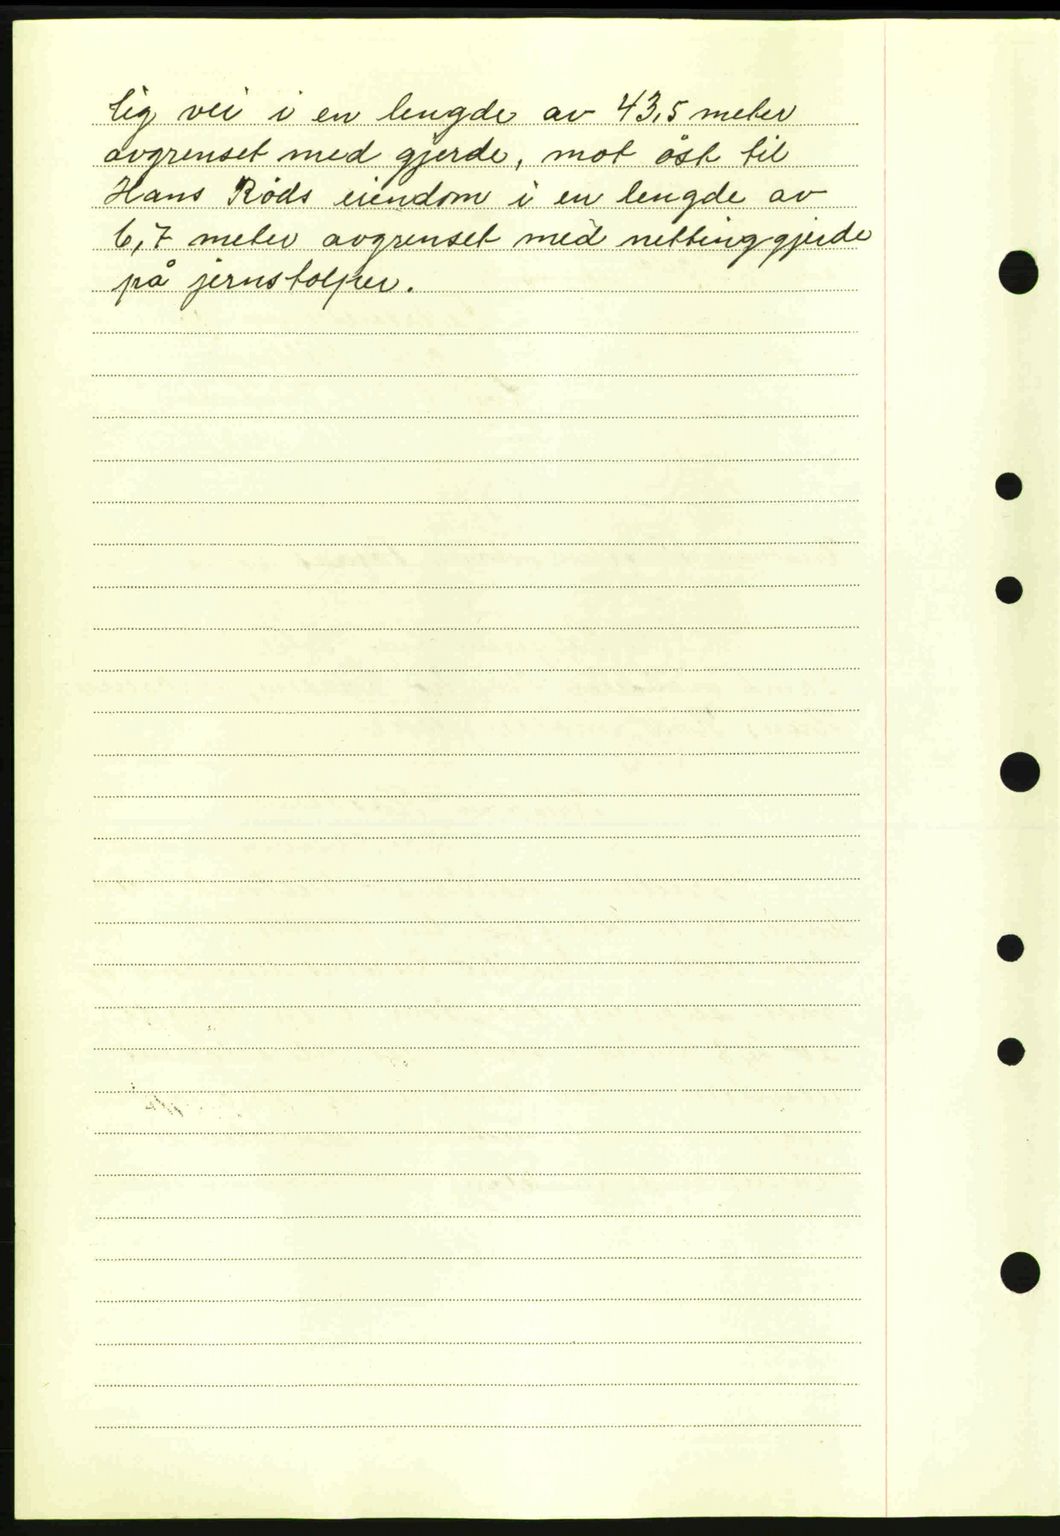 lig vei i en lengde av 43,5 meter
avgrenset med gjerde, mot öst til
Hans Röds eiendom i en lengde av
6,7 meter avgrenset med nettinggjerde
på jernstolper.